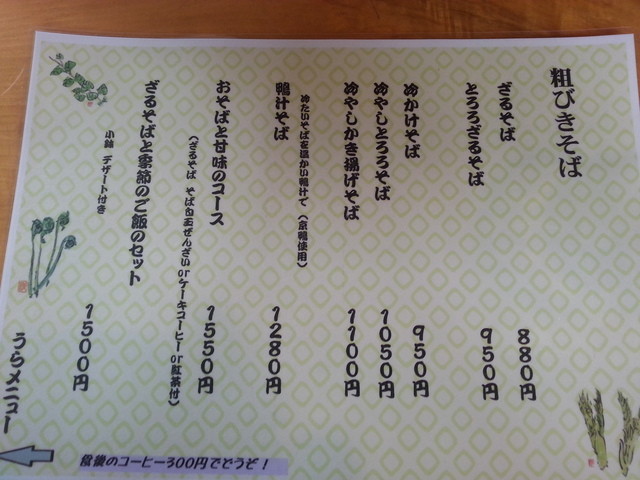 粗びきそば
ざるそば 880円
とろろざるそば 950円
冷かけそば 950円
冷やしとろろそば 1050円
冷やしかき揚げそば 1100円
冷たいそばを温かい鴨汁で（京鴨使用）
鴨汁そば 1280円
おそばと甘味のコース 1550円
（ざるそば そば白玉ぜんざいorケーキコーヒーor紅茶付）
ざるそばと季節のご飯のセット
小鉢 デザート付き 1500円
うらメニュー
食後のコーヒー300円でどうぞ！